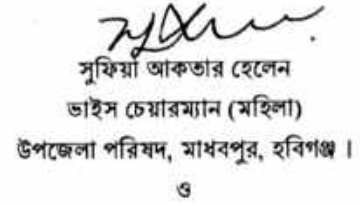 সুফিয়া আকতার হেলেন
ভাইস চেয়ারম্যান (মহিলা)
উপজেলা পরিষদ, মাধবপুর, হবিগঞ্জ ।
ও